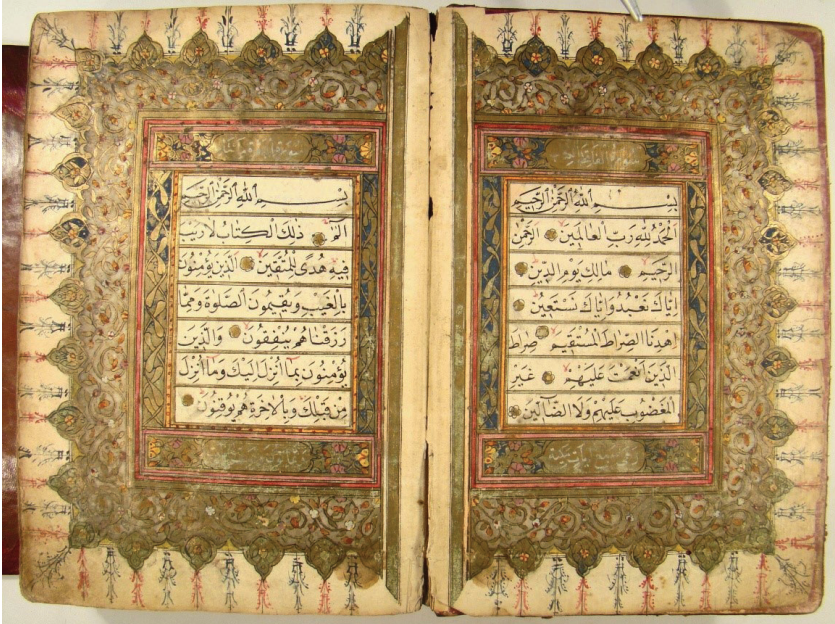 سورة الفاتحة
بسم الله الرحمن الرحيم
الحمد لله رب العالمين الرحمن
الرحيم مالك يوم الدين
اياك نعبد واياك نستعين
اهدنا الصراط المستقيم صراط
الذين انعمت عليهم غير
المغضوب عليهم ولا الضآلين
بسم الله الرحمن الرحيم
الم ذلك الكتاب لا ريب
فيه هدى للمتقين الذين يؤمنون
بالغيب ويقيمون الصلوة ومما
رزقناهم ينفقون والذين
يؤمنون بما انزل اليك وما انزل
من قبلك وبالاخرة هم يوقنون